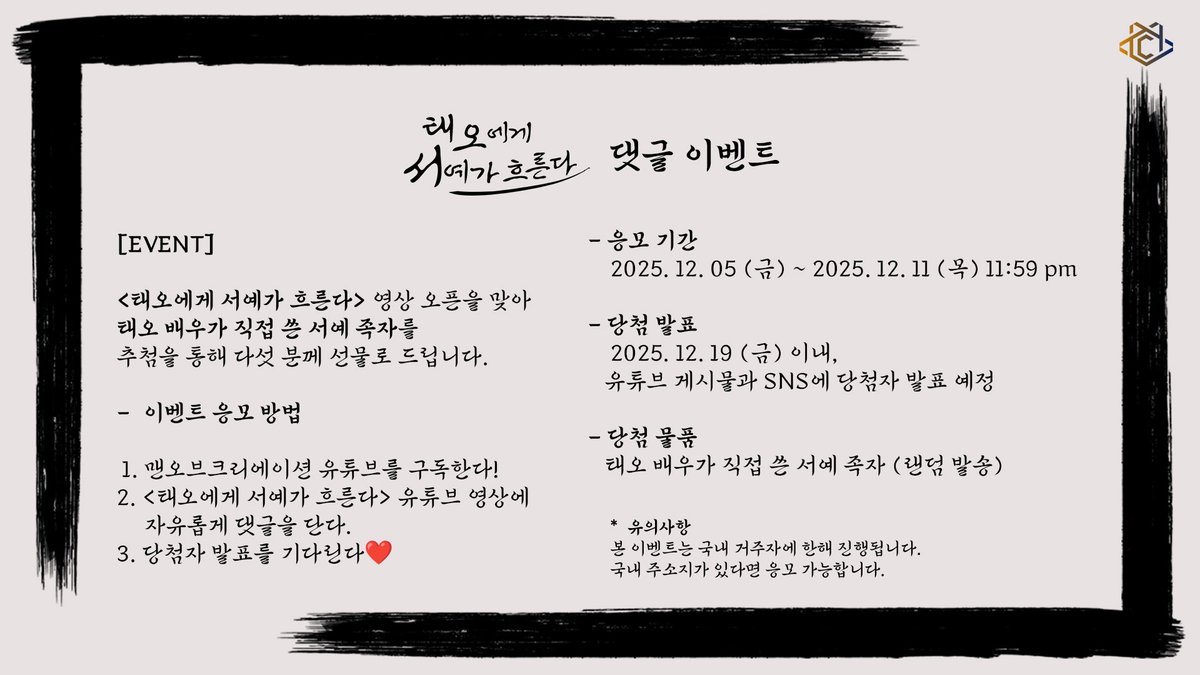 태오에게
서예가 흐른다 댓글 이벤트
[EVENT]
<태오에게 서예가 흐른다> 영상 오픈을 맞아
태오 배우가 직접 쓴 서예 족자를
추첨을 통해 다섯 분께 선물로 드립니다.
- 이벤트 응모 방법
1. 맨오브크리에이션 유튜브를 구독한다!
2. <태오에게 서예가 흐른다> 유튜브 영상에
자유롭게 댓글을 단다.
3. 당첨자 발표를 기다린다❤️
- 응모 기간
2025. 12. 05 (금) ~ 2025. 12. 11 (목) 11:59 pm
- 당첨 발표
2025. 12. 19 (금) 이내,
유튜브 게시물과 SNS에 당첨자 발표 예정
- 당첨 물품
태오 배우가 직접 쓴 서예 족자 (랜덤 발송)
* 유의사항
본 이벤트는 국내 거주자에 한해 진행됩니다.
국내 주소지가 있다면 응모 가능합니다.